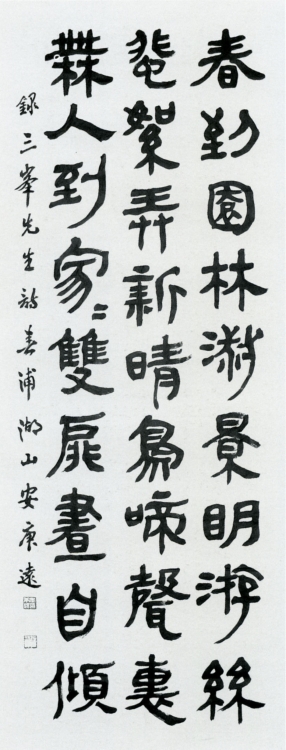 春到園林淑景明游絲
蜚絮弄新晴鳥啼聲裏
無人到寂〻雙扉晝自傾
錄三峯先生詩春浦湖山安庚遠